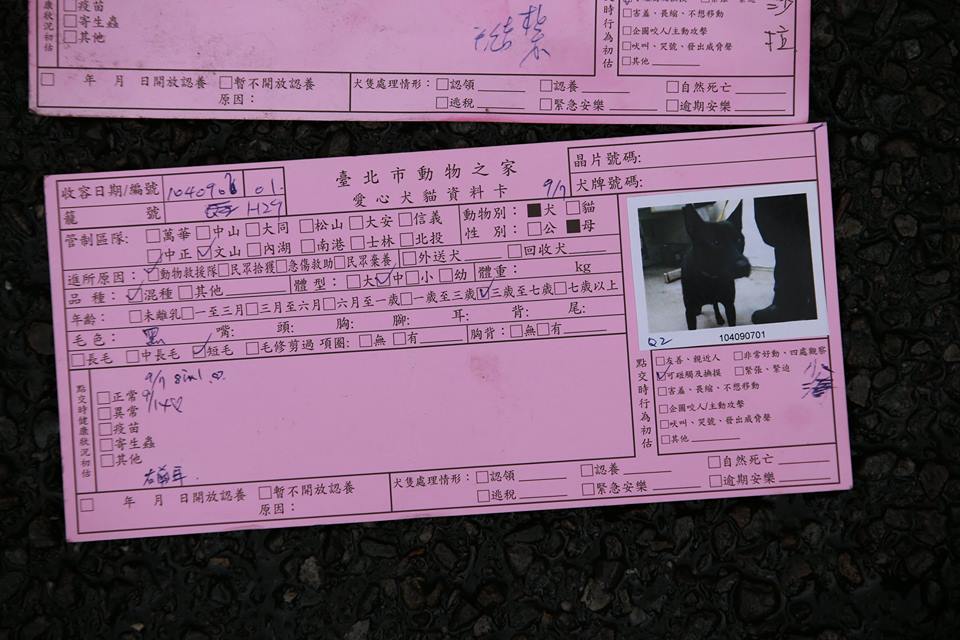 □疫苗
□寄生蟲
□其他
□害羞、畏縮、不想移動
□企圖咬人/主動攻擊
□吠叫、哭號、發出威脅聲
□其他
□ 年 月 日開放認養 □暫不開放認養 犬隻處理情形：□認領 □認養 □自然死亡
原因： □逃稅 □緊急安樂 □逾期安樂
臺北市動物之家
愛心犬貓資料卡
收容日期/編號 01.
籠 號 H29
9/7
晶片號碼:
犬牌號碼:
管制區隊: □萬華 □中山 □大同 □松山 □大安 □信義
□中正 ☑文山 □內湖 □南港 □士林 □北投
動物別：■犬 □貓
性 別：□公 ■母
進所原因：□動物救援隊 □民眾拾獲 □急傷救助 □民眾棄養 □外送犬 □回收犬
品 種：☑混種 □其他 體 型：□大 ☑中 □小 □幼 體重： kg
年齡： □未離乳 □一至三月 □三月至六月 □六月至一歲 □一歲至三歲 ☑三歲至七歲 □七歲以上
毛 色：黑 嘴： 頭： 胸： 腳： 耳： 背： 尾：
□長毛 □中長毛 ☑短毛 □毛修剪過 項圈：□無 □有 胸背：□無 □有
104090701
點交時健康狀況初估
□正常
□異常
□疫苗
□寄生蟲
□其他
點交時行為初估
□友善、親近人 □非常好動，四處觀察
☑可碰觸及撫摸 □緊張、緊迫
□害羞、畏縮、不想移動
□企圖咬人/主動攻擊
□吠叫、哭號、發出威脅聲
□其他
□ 年 月 日開放認養 □暫不開放認養 犬隻處理情形：□認領 □認養 □自然死亡
原因： □逃稅 □緊急安樂 □逾期安樂